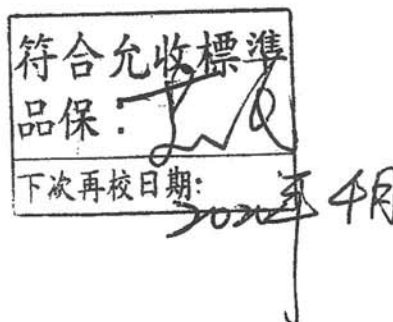 符合允收標準
品保：
下次再校日期：
年4月